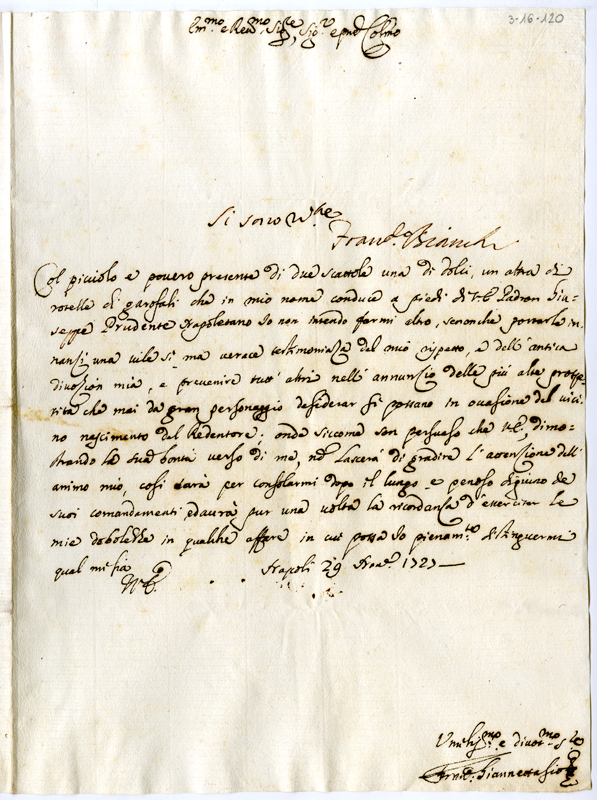 3-16-120
Em.mo e Rev.mo Sig.re, Sig.r e pñd Colmo
Si sono
Franc.o Bianchi
Col picciolo e povero presente di due scattole una di dolci, un altra di
rotelle di garofali che in mio nome conduce a piedi di V.E. Padron Giu=
seppe Prudente Napoletano Io non intendo farmi altro, senonche portarle in=
nanzi una vile si, ma verace testimonianza del mio rispetto, e dell'antica
divozion mia, e prevenire tutt'altri nell'annunzio delle più alte prospe=
rità che mai da gran personaggio desiderar si possano in occasione del vici=
no nascimento del Redentore; onde siccome son persuaso che V.E., dimo=
strando la sua bontà verso di me, non lascerà di gradire l'attenzione dell'
animo mio, così darà per consolarmi dopo il lungo e penoso digiuno de
suoi comandamenti, e daurà pur una volta la ricordanza d'esercitar le
mie debolezze in qualche affare in cui possa Io pienam.te distinguermi
qual mi sia
Napoli 29 1727
V.E.
Umiliss.mo e divot.mo
Franc.o Giannettasio